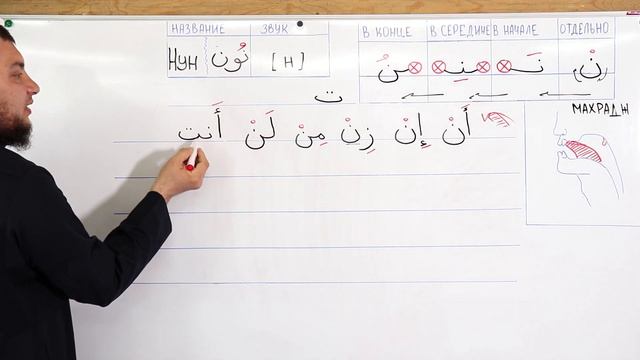 НАЗВАНИЕ ЗВУК
В КОНЦЕ В СЕРЕДИНЕ В НАЧАЛЕ ОТДЕЛЬНО
Нун نُون [н]
ـنُ ـنِـ نَـ نْ
МАХРАДЖ
ت
أَنْ إِنْ زِنْ مِنْ لَنْ أَنت